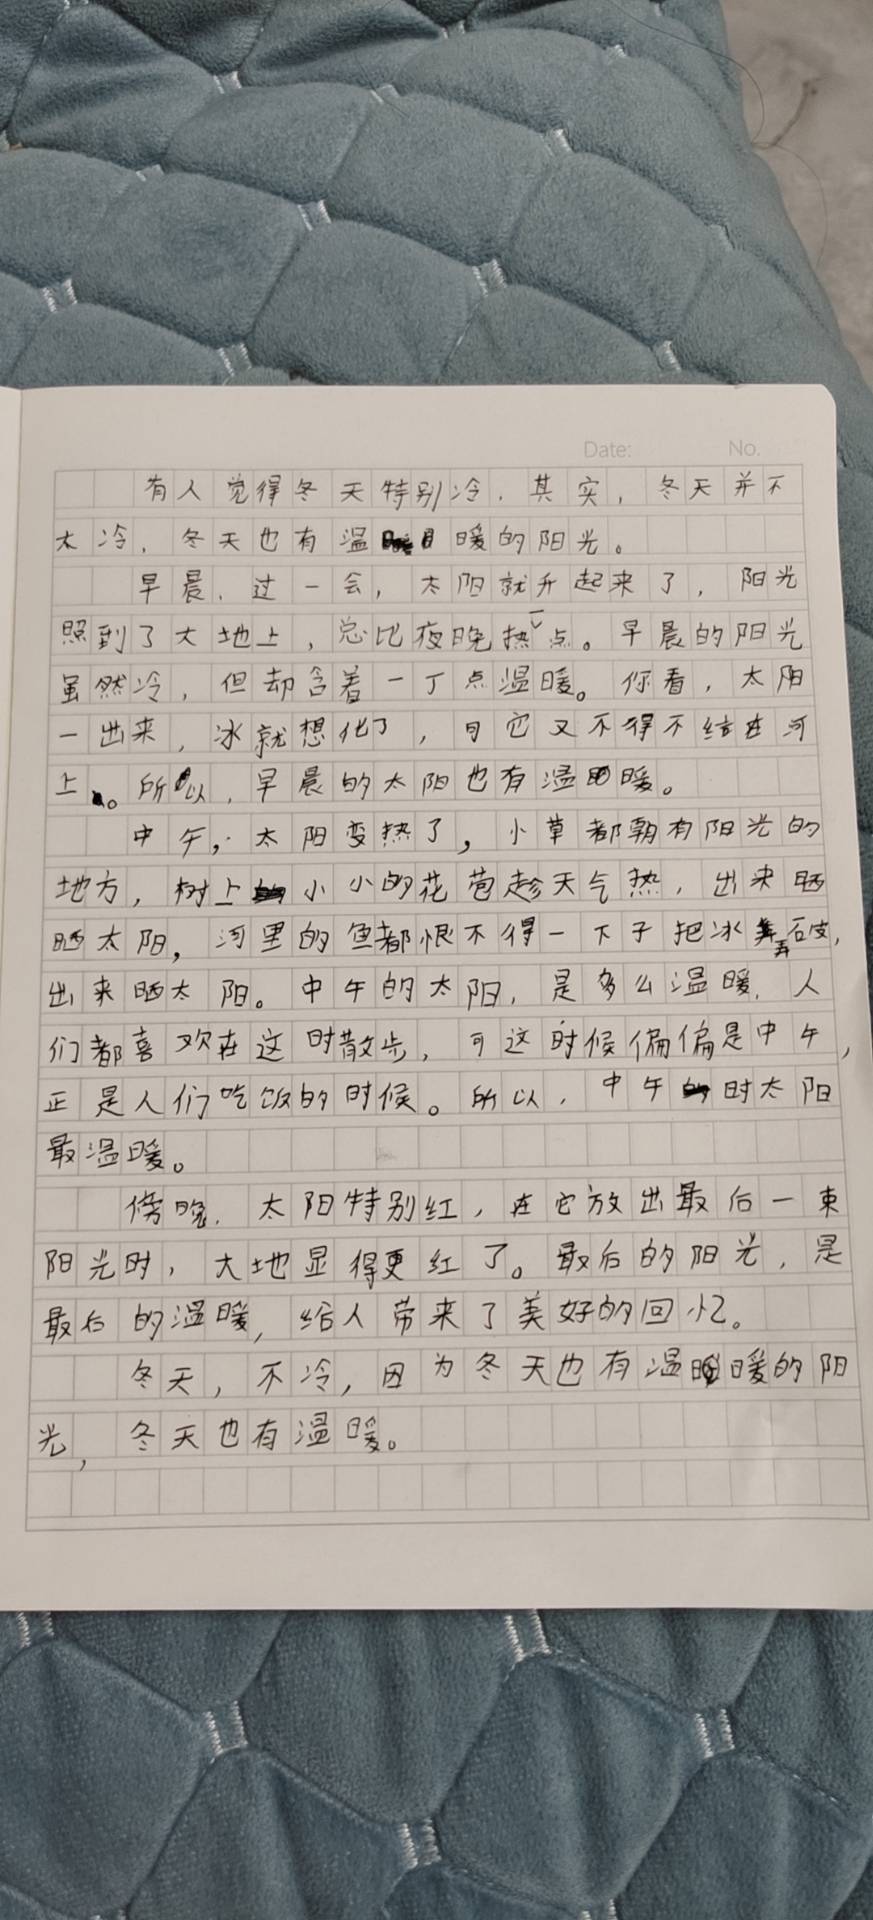 Date: No.
有人觉得冬天特别冷,其实,冬天并不
太冷,冬天也有温暖的阳光。
早晨,过一会,太阳就升起来了,阳光
照到了大地上,总比夜晚热一点。早晨的阳光
虽然冷,但却含着一丁点温暖。你看,太阳
一出来,冰就想化了,可它又不得不结在河
上。所以,早晨的太阳也有温暖。
中午,太阳变热了,小草都朝有阳光的
地方,树上小小的花苞趁天气热,出来晒
晒太阳,河里的鱼都恨不得一下子把冰弄破,
出来晒太阳。中午的太阳,是多么温暖,人
们都喜欢在这时散步,可这时候偏偏是中午,
正是人们吃饭的时候。所以,中午时太阳
最温暖。
傍晚,太阳特别红,在它放出最后一束
阳光时,大地显得更红了。最后的阳光,是
最后的温暖,给人带来了美好的回忆。
冬天,不冷,因为冬天也有温暖的阳
光,冬天也有温暖。